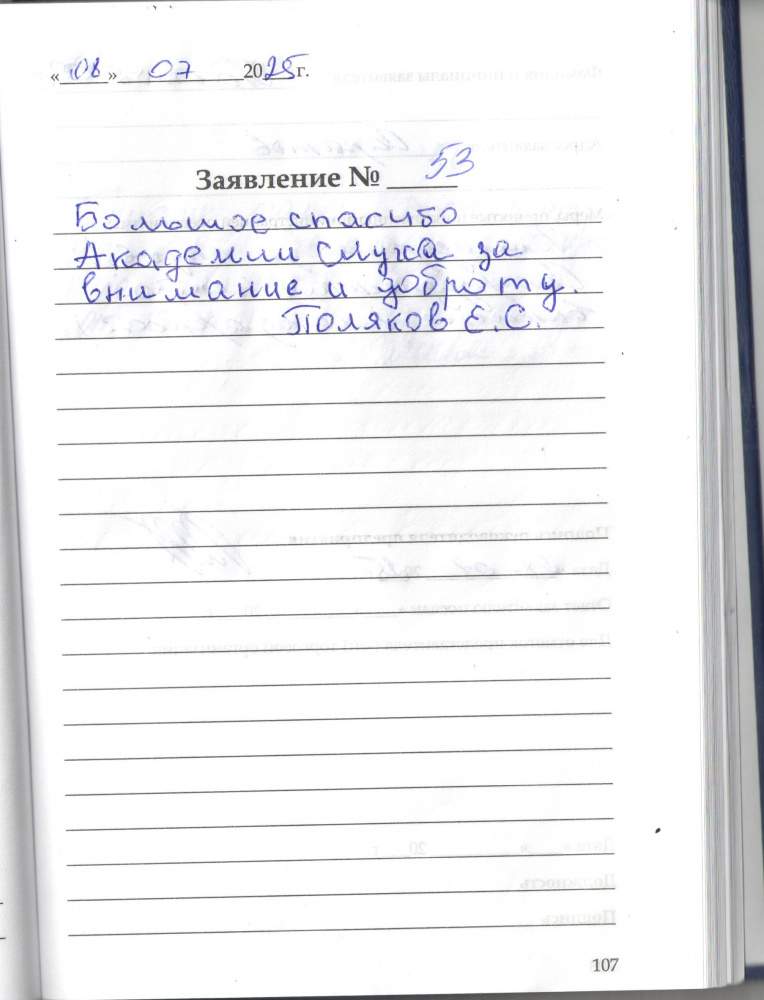 «08» 07 2025 г.
Заявление № 53
Большое спасибо
Академии слуха за
внимание и доброту.
Поляков Е.С.
107